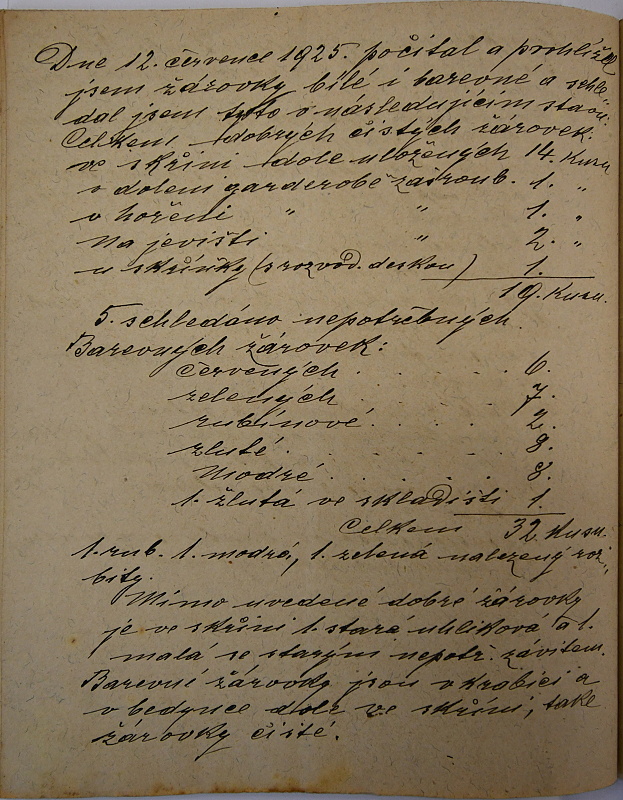 Dne 12. července 1925. počítal a prohlížel
jsem žárovky bílé i barevné a schle
dal jsem tyto v následujícím stavu:
Celkem dobrých čistých žárovek:
ve skříni dole uložených 14. Kusu
v doleni garderobě zašroub. 1. "
v hořeni " " 1. "
na jevišti " 2. "
u skříňky (s rozvod. deskou) 1.
19. Kusu.
5. schledáno nepotřebných.
Barevných žárovek:
červených . . . . . 6.
zelených . . . . . 7.
rubínové . . . . . 2.
žluté . . . . . 8.
modré . . . . . 8.
1. žlutá ve skladišti 1.
Celkem 32. Kusu.
1. rub. 1. modrá, 1. zelená nalezený roz-
bity.
Mimo uvedené dobré žárovky
je ve skříni 1. stará uhlíková a 1.
malá se starým nepotř. závitem.
Barevné žárovky jsou v krabici a
v bedynce dole ve skříni, také
žárovky čisté.